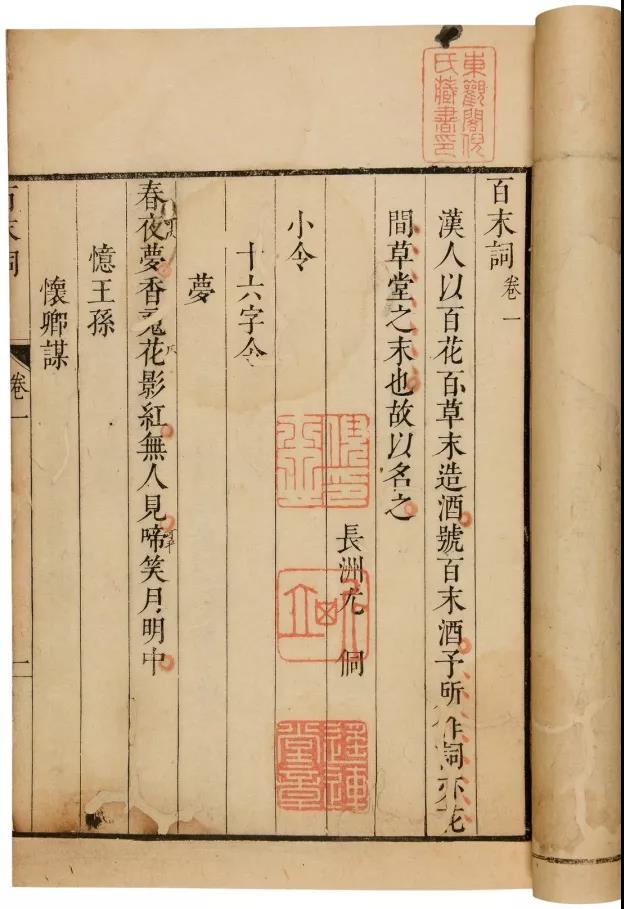 東觀閣倪
氏藏書印
百末詞 卷一
漢人以百花百草末造酒號百末酒予所作詞亦花
間草堂之末也故以名之
長洲尤侗
小令
十六字令
夢
春夜夢香魂花影紅無人見啼笑月明中
憶王孫
懷卿謀
百末詞 卷一 一